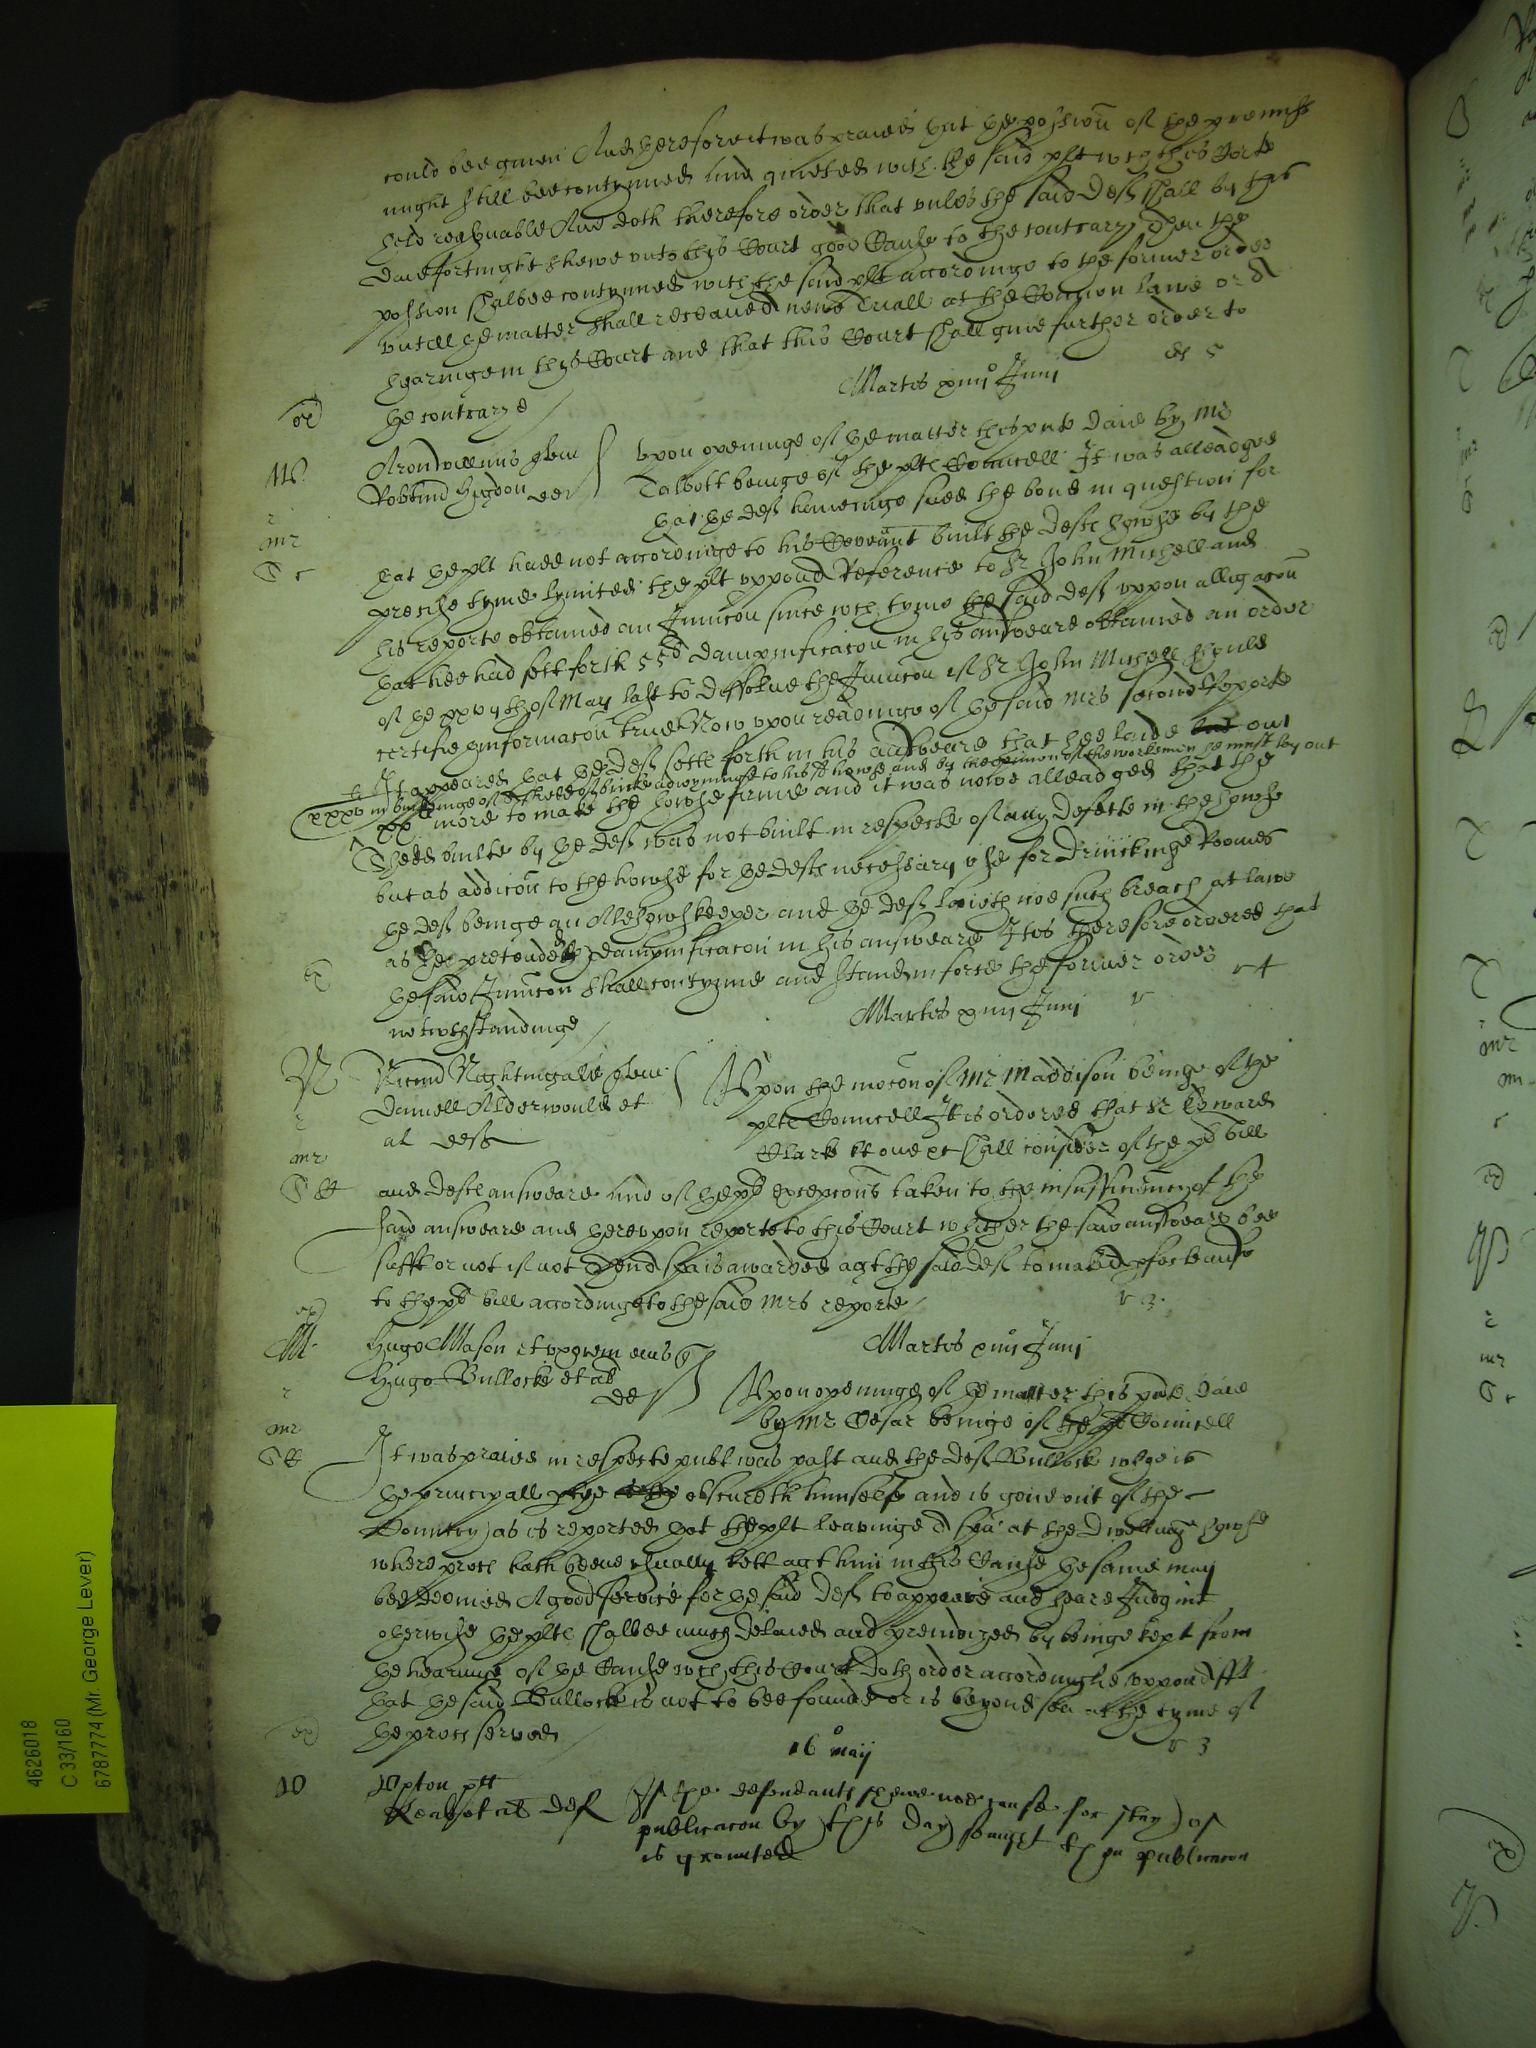 could bee given And therefore it was praied that the possion of the premiss
might still bee contynued and quieted with the said plt wch this Corte
held reasonable And doth therefore order that unles the said deft shall by this
daie fortnight shewe unto this Court good Cause to the contrary then the
possion shalbee contynued with the said plt accordinge to the former order
untill the matter shall receaue newe triall at the Comon lawe or
hearinge in this Court and that this Court shall give further order to
the contrarye
Martis xiiii Junii
upon openinge of the matter this pnte daie by Mr
Talbott beinge of the plts Councell It was alleadged
that the deft haveinge sued the bond in question for
that the plt hadd not accordinge to his Covenant built the defts howse by the
precise tyme lymited the plt uppon Reference to Sr John Michell and
his reporte obtained an Iniuncon since wch tyme the said deft uppon allegacon
that hee had sett forth dampnificacon in his answeare obtained an order
of the xxvth of May last to dissolve the Iniuncon if Sr John Michell should
certifie informacon true Now upon readinge of the said Mrs second Reporte
It appeared that the deft sett forth in his answeare that hee laide out
in buildinge of of bricke adioyninge to his howse and by the opinion of the workemen he must lay out
more to make the howse firme and it was nowe alleadged that the
built by the deft was not built in respecte of any defecte in the howse
but as addicon to the howse for the defts necessary use for drinckinge Roomes
the deft beinge an Alehowskeeper and the deft laieth noe such breach at lawe
as hee pretendeth dampnificacon in his answeare It is therefore ordered that
the said Iniuncon shall contynue and stand in force the former order
notwthstandinge
Martis xiiii Junii
Nightingale quer
Daniell Alderwould et
al defts
Upon the mocon of Mr Maddison beinge of the
plts Councell It is ordered that Sr Edward
Clark kt one etc shall consider of the pts bill
and defts answeare and of the pts excepcons taken to the insufficiency of the
said answeare and thereupon reporte to this Court whither the said answeare bee
sufft or not if not then spa is awarded agt the said deft to make pfect answ
to the pts bill accordinge to the said Mrs reporte
Hugo Mason et uxorem eius
Hugo Bullocke et al
de
Martis xiiii Junii
Upon openinge of the matter this pnte daie
by Mr Cesar beinge of the pts Councell
It was praied in respecte publ was past and the deft Bullock whoe is
the principall ptye obscureth himself and is gone out of the
Country as is reported yet the plt leavinge a spa at the dwellinge howse
where proces hath beene usually left agt him in this Cause the same may
bee deemed A good service for the said deft to appeare and heare Judgmt
otherwise the plts shalbee much delaied and preiudized by beinge kept from
the hearinge of the Cause wch this Court doth order accordinglie uppon
that the said Bullock is not to bee founde or is beyond sea at the tyme of
the proces served
16 maij
Upton plt
al def
If the defendants shewe noe cause for stay of
publicacon by this day sennight then publicacon
is graunted
4626018
C 33/160
6787774 (Mr. George Lever)